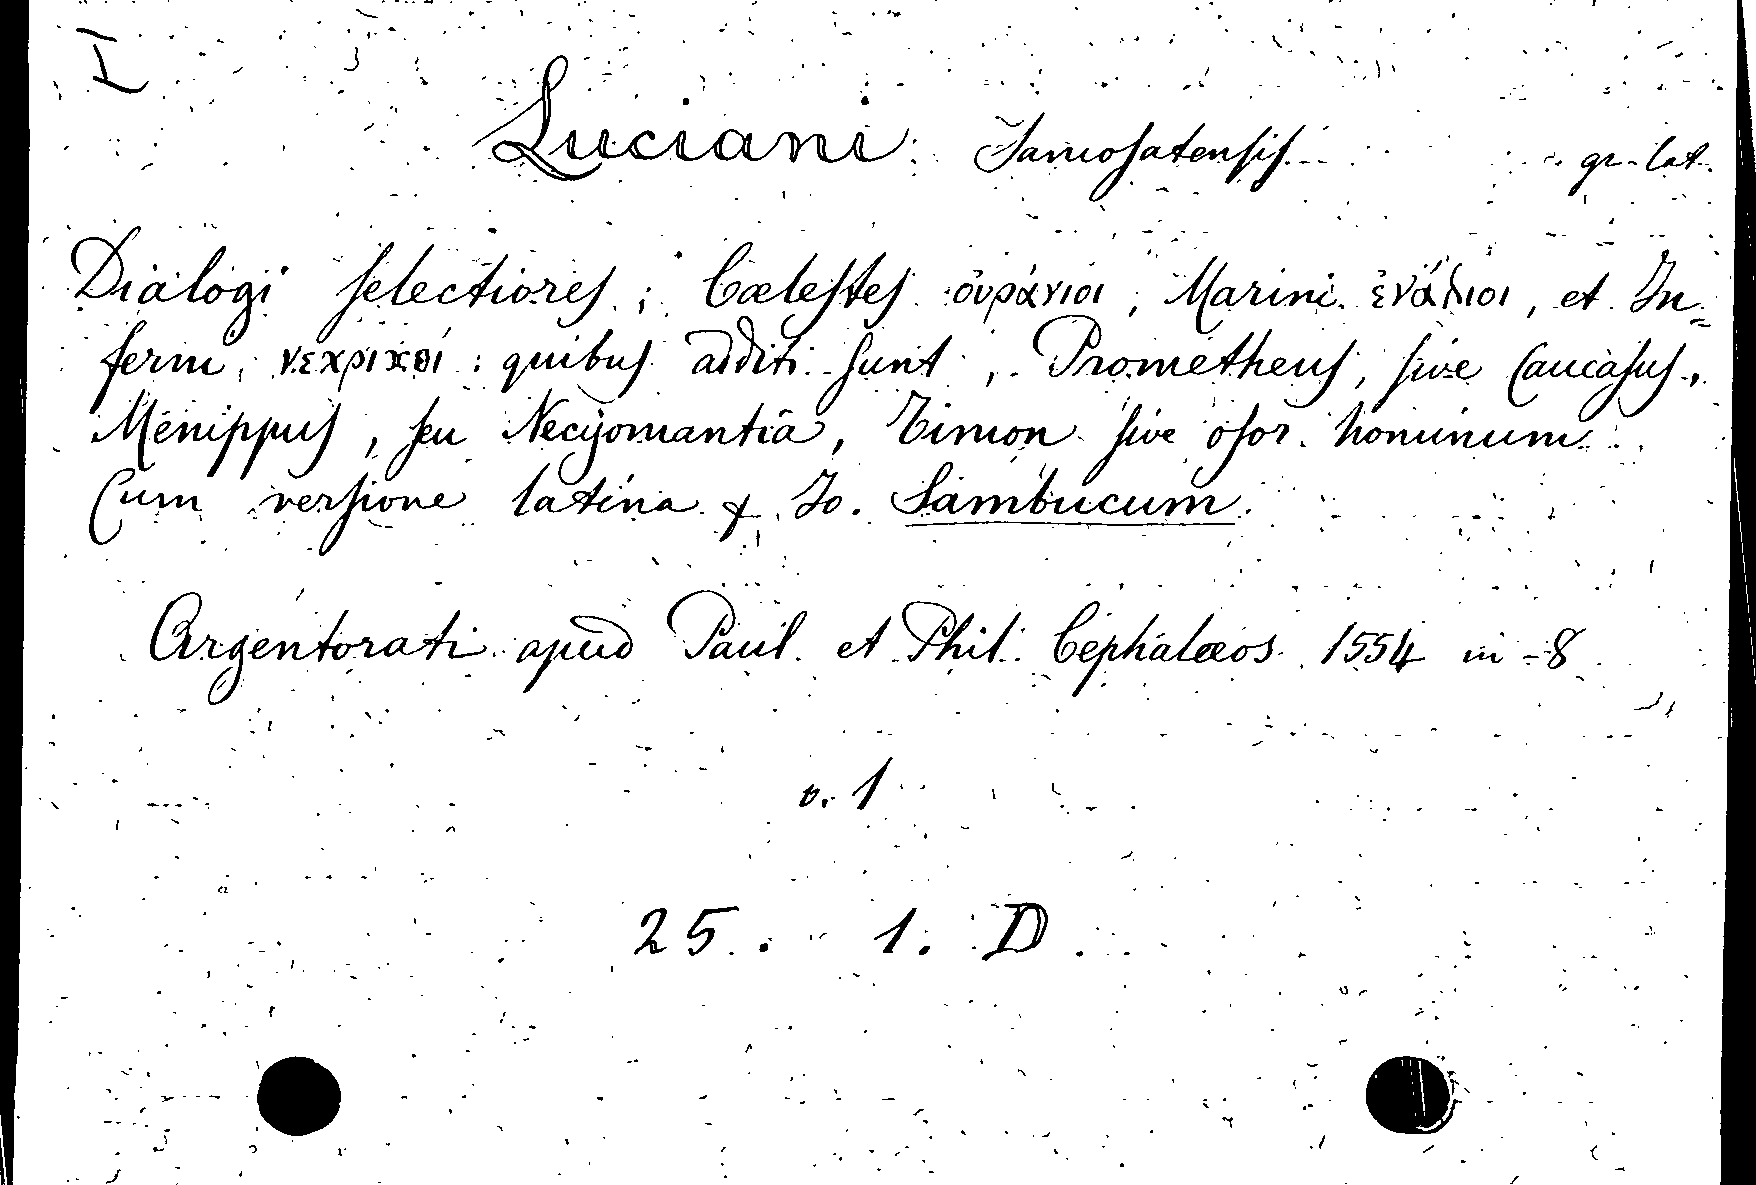 H
Luciani Samosatensis gr-lat.
Dialogi selectiores; Cælestes οὐράνιοι, Marini ἐνάλιοι, et In=
ferni, νεκρικοί: quibus additi sunt, Prometheus, sive Caucasus,
Menippus, seu Necyomantia, Timon sive osor hominum.
Cum versione latina & Jo. Sambucum.
Argentorati apud Paul. et Phil. Cephalæos 1554 in-8
v. 1
25. 1. D.